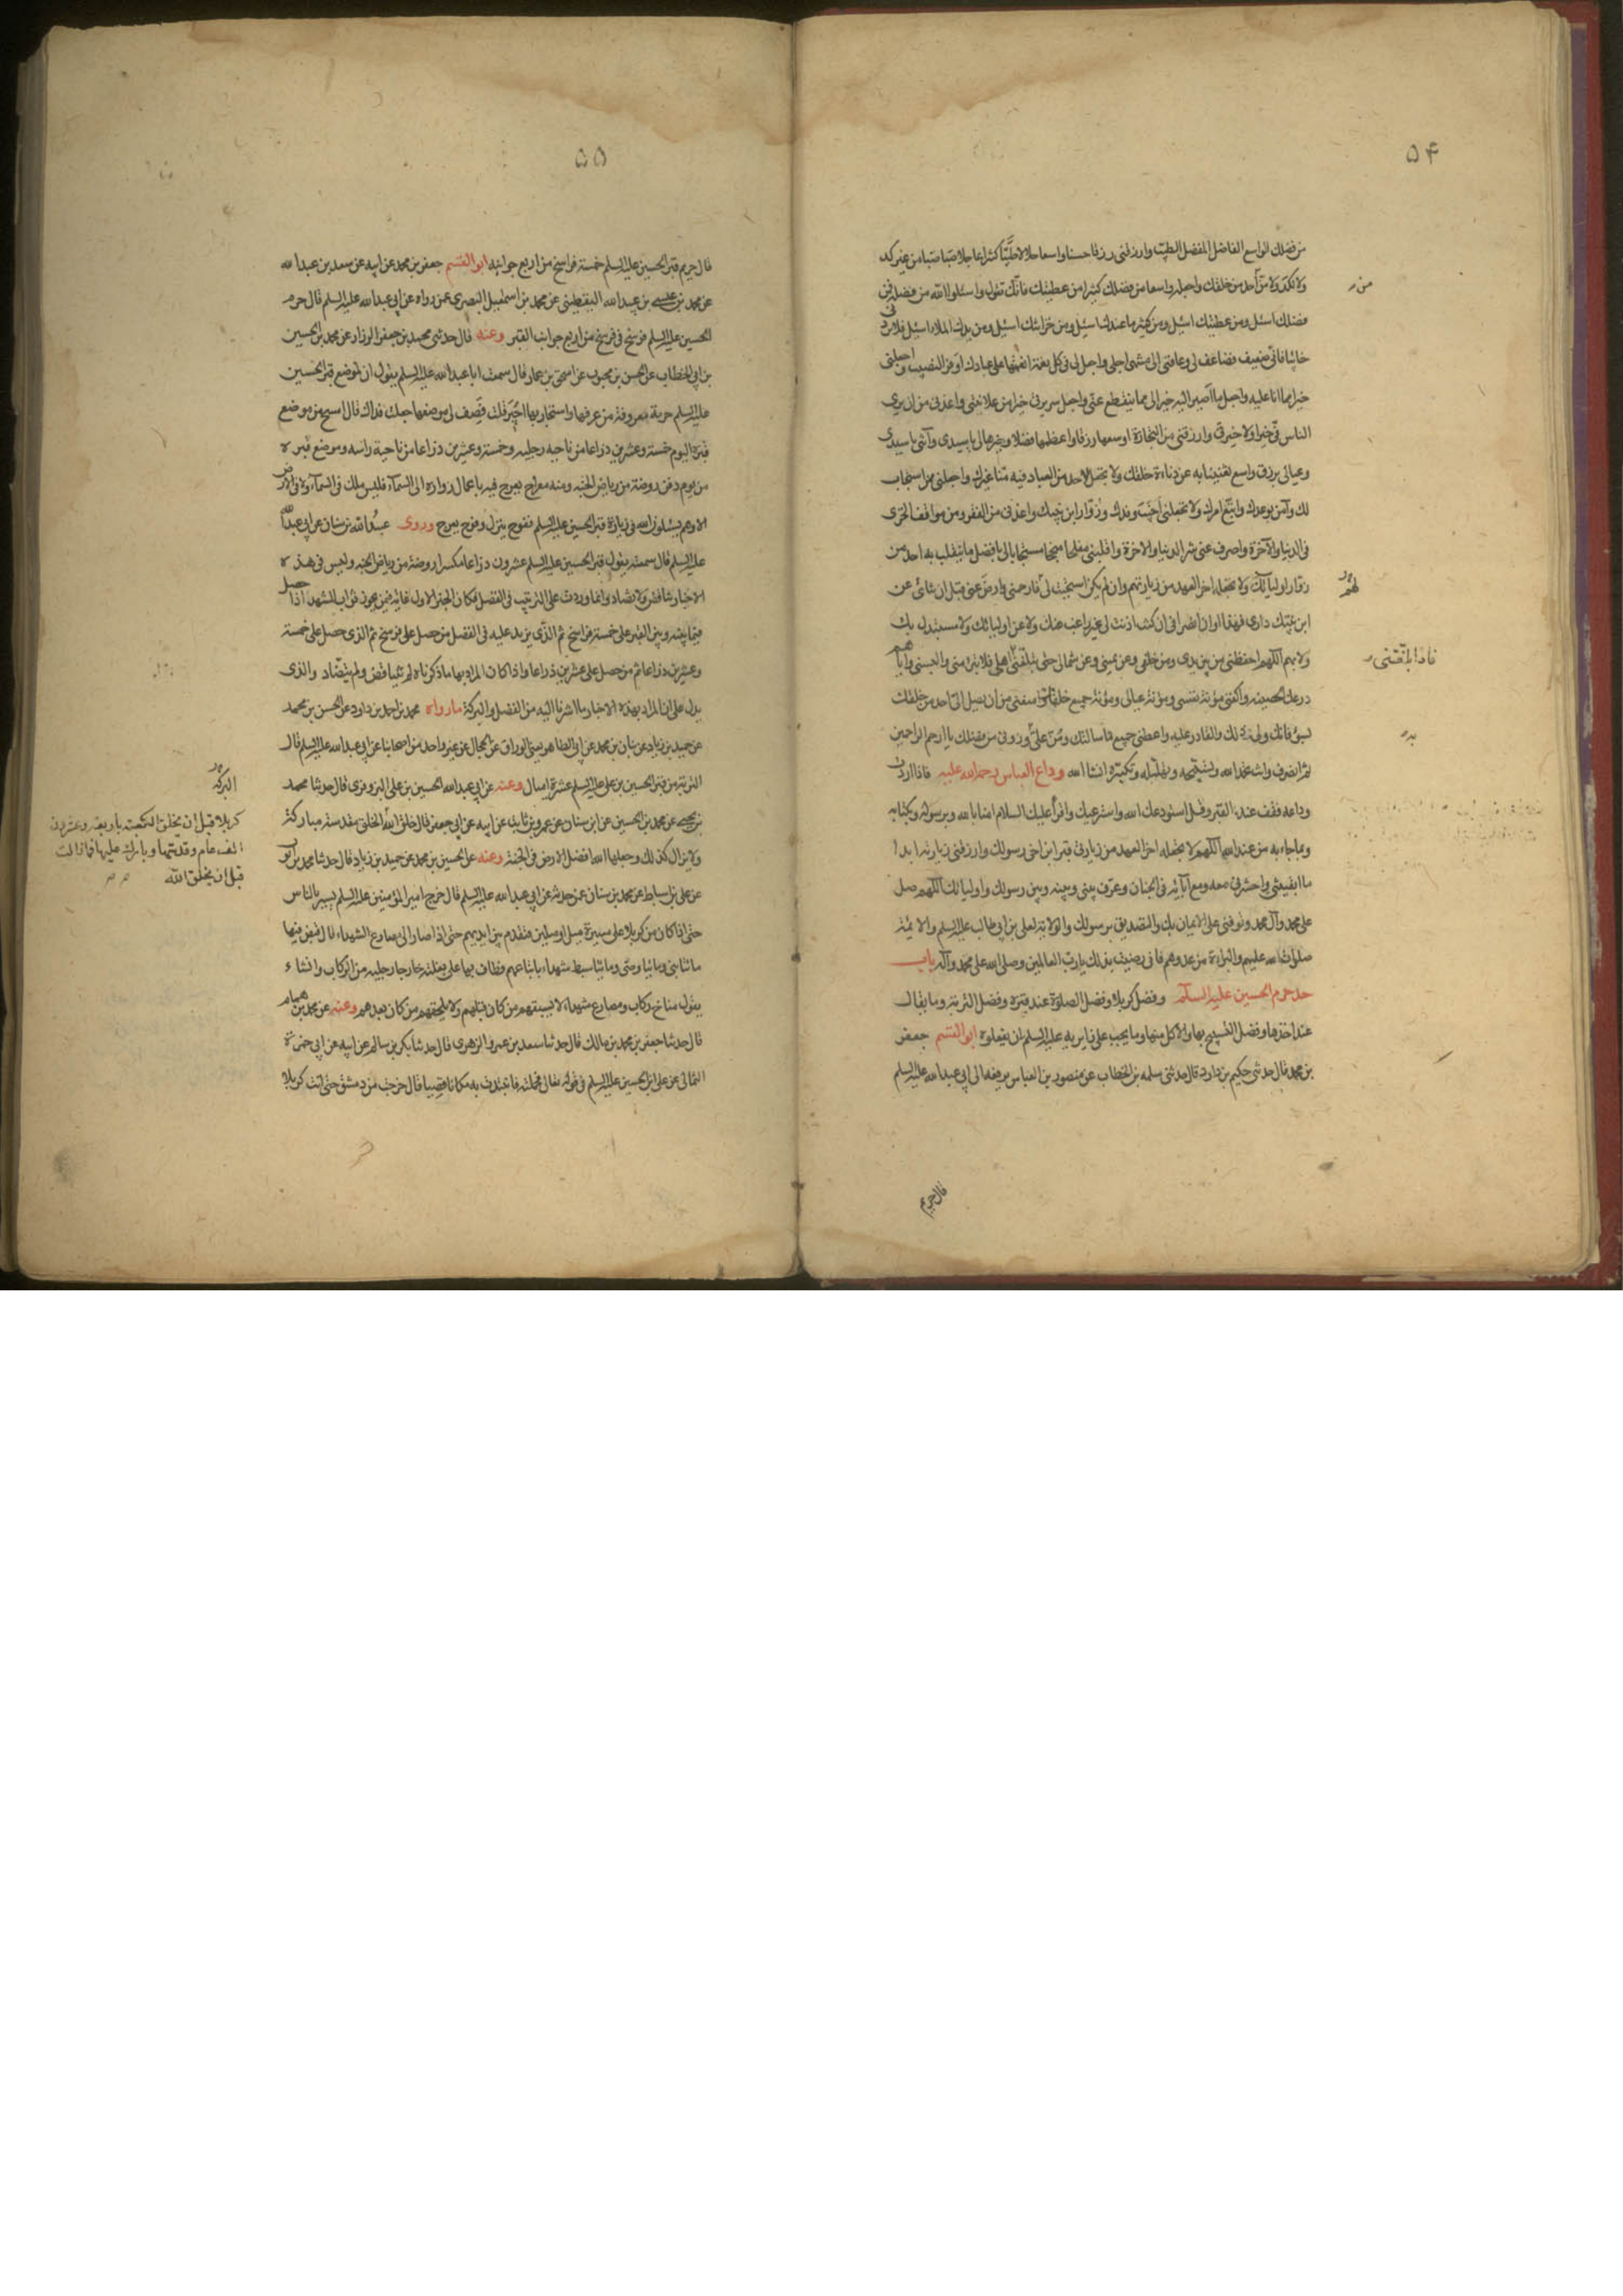 ۵۴
من فضلك الواسع الفاضل المفضل الطيب وارزقنى رزقا واسعا حلالا طيبا كثيرا عاجلا صبا صبا من غير كد
ولا نكد ولا من أحد من خلقك واجعله واسعا من فضلك كثيرا من عطيتك فانك تقول واسئلوا الله من فضله فمن
فضلك اسئل ومن عطيتك اسئل ومن كثير ما عندك اسئل ومن خزائنك اسئل ومن يدك الملاء اسئل فلا تردنى
خائبا فانى ضعيف فضاعف لى وعافنى الى منتهى اجلى واجعل لى فى كل نعمة انعمتها على عبادك اوفر النصيب واجعلنى
خيرا مما انا عليه واجعل ما اصير اليه خيرا لى مما ينقطع عنى واجعل سريرتى خيرا من علانيتى واعذنى من ان يرى
الناس فى خيرا ولا خير فى وارزقنى من التجارة اوسعها رزقا واعظمها فضلا وخيرها لى يا سيدى وآتنى يا سيدى
وعيالى برزق واسع تغنينا به عن دناءة خلقك ولا تجعل لاحد من العباد فيه منا غيرك واجعلنى ممن استجاب
لك وآمن بوعدك واتبع امرك ولا تجعلنى اخيب وفدك وزوار ابن نبيك واعذنى من الفقر ومن مواقف الخزى
فى الدنيا والآخرة واصرف عنى شر الدنيا والآخرة واقلبنى مفلحا منجحا مستجابا لى بافضل ما ينقلب به احد من
زوار اوليائك ولا تجعله اخر العهد من زيارتهم وان لم يكن استجبت لى فارحمنى وارض عنى قبل ان تنائى عن
ابن نبيك دارى فهذا اوان انصرافى ان كنت اذنت لى غير راغب عنك ولا عن اوليائك ولا مستبدل بك
ولا بهم اللهم احفظنى من بين يدى ومن خلفى وعن يمينى وعن شمالى حتى تبلغنى اهلى فلا تبرء منى والبسنى واياهم
درعك الحصينة واكفنى مؤنة نفسى ومؤنة عيالى ومؤنة جميع خلقك وامنعنى من ان يصل الى احد من خلقك
بسوء فانك ولى ذلك والقادر عليه واعطنى جميع ما سالتك ومن على وزدنى من فضلك يا ارحم الراحمين
ثم انصرف وانت تحمد الله وتسبحه وتهلله وتكبره انشا الله وداع العباس رحمة الله عليه فاذا اردت
وداعه فقف عند القبر وقل استودعك الله واسترعيك واقرأ عليك السلام امنا بالله وبرسوله وبكتابه
وبما جاء به من عند الله اللهم لا تجعله اخر العهد من زيارتى قبر ابن اخى رسولك وارزقنى زيارته ابدا
ما ابقيتنى واحشرنى معه ومع آبائه فى الجنان وعرف بينى وبينه وبين رسولك واوليائك اللهم صل
على محمد وآل محمد وتوفنى على الايمان بك والتصديق برسولك والولاية لعلى بن ابى طالب عليه السلم والائمة
صلوات الله عليهم والبراءة من عدوهم فانى رضيت بذلك يا رب العالمين وصلى الله على محمد وآله باب
حد حرم الحسين عليه السلام وفضل كربلا وفضل الصلوة عند قبره وفضل التربة وما يقال
عند اخذها وفضل التسبيح بها والاكل منها وما يجب على زايريه عليه السلم ان يفعلوه ابو القسم جعفر
بن محمد قال حدثنى حكيم بن داود قال حدثنى سلمه بن الخطاب عن منصور بن العباس يرفعه الى ابى عبدالله عليه السلم
قال حريم
من
لهم
فاذا بلغتنى
۵۵
قال حريم قبر الحسين عليه السلم خمسة فراسخ من اربع جوانبه ابو القسم جعفر بن محمد عن ابيه عن سعد بن عبدالله
عن محمد بن عيسى بن عبيد الله اليقطينى عن محمد بن اسمعيل البصرى عمن رواه عن ابى عبدالله عليه السلم قال حرم
الحسين عليه السلم فرسخ فى فرسخ من اربع جوانب القبر وعنه قال حدثنى محمد بن جعفر الرزاز عن محمد بن الحسين
بن ابى الخطاب عن الحسن بن محبوب عن اسحق بن عمار قال سمعت ابا عبدالله عليه السلم يقول ان لموضع قبر الحسين
عليه السلم حرمة معروفة من عرفها واستجار بها اجير قلت فصف لى موضعها جعلت فداك قال امسح من موضع
قبره اليوم خمسة وعشرين ذراعا من ناحية رجليه وخمسة وعشرين ذراعا من ناحية راسه وموضع قبره
من يوم دفن روضة من رياض الجنة ومنه معراج يعرج فيه باعمال زواره الى السماء فليس ملك فى السماء ولا فى الارض
الا وهم يسئلون الله فى زيارة قبر الحسين عليه السلم ففوج ينزل وفوج يعرج وروى عبد الله بن سنان عن ابى عبدالله
عليه السلم قال سمعته يقول قبر الحسين عليه السلم عشرون ذراعا مكسرا روضة من رياض الجنة وليس فى هذه
الاخبار تناقض ولا تضاد وانما وردت على الترتيب فى الفضل فكان الخبر الاول غاية فيمن يحوز ثواب المشهد اذا حصل
فيما بينه وبين القبر على خمسة فراسخ ثم الذى يزيد عليه فى الفضل من حصل على فرسخ ثم الذى حصل على خمسة
وعشرين ذراعا ثم من حصل على عشرين ذراعا واذا كان المراد بها ما ذكرناه لم تتناقض ولم تتضاد والذى
يدل على ان المراد بهذه الاخبار ما اشرنا اليه من الفضل والبركة ما رواه محمد بن احمد بن داود عن الحسن بن محمد
عن حميد بن زياد عن بنان بن محمد عن ابى الطاهر يعنى الوراق عن الحجال عن غير واحد من اصحابنا عن ابى عبدالله عليه السلم قال
التربة من قبر الحسين بن على عليه السلم عشرة اميال وعنه عن ابى عبدالله الحسين بن على البزوفرى قال حدثنا محمد
بن يحيى عن محمد بن الحسين عن ابن سنان عن عمرو بن ثابت عن ابيه عن ابى جعفر قال خلق الله الخلق مقدسة مباركة
ولا يزال كذلك وجعلها الله افضل الارض فى الجنة وعنه عن الحسين بن محمد عن حميد بن زياد قال حدثنا محمد بن ايوب
عن على بن اسباط عن محمد بن سنان عمن حدثه عن ابى عبدالله عليه السلم قال خرج امير المؤمنين عليه السلم يسير بالناس
حتى اذا كان من كربلا على مسيرة ميل او ميلين فتقدم بين ايديهم حتى اذا صار الى مصارع الشهداء قال قبض فيها
مائتا نبى ومائتا وصى ومائتا سبط شهداء باتباعهم فطاف بها على بغلته خارجا رجليه من الركاب وانشاء
يقول مناخ ركاب ومصارع شهداء لا يسبقهم من كان قبلهم ولا يلحقهم من كان بعدهم وعنه عن محمد بن همام
قال حدثنا جعفر بن محمد بن مالك قال حدثنا سعد بن عمرو الزهرى قال حدثنا بكر بن سالم عن ابيه عن ابى حمزة
الثمالى عن على بن الحسين عليه السلم فى قوله تعالى فحملته فانتبذت به مكانا قصيا قال خرجت من دمشق حتى اتت كربلا
كربلا قبل ان يخلق الكعبة باربعة وعشرين
الف عام وقدسها وبارك عليها فما زالت
قبل ان يخلق الله